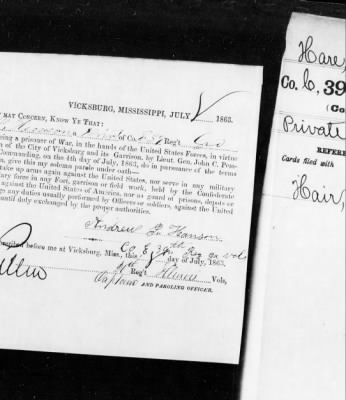 VICKSBURG, MISSISSIPPI, JULY 1863.
MAY CONCERN, KNOW YE THAT:
of Co. Reg't
being a prisoner of War, in the hands of the United States Forces, in virtue
of the City of Vicksburg and its Garrison, by Lieut. Gen. John C. Pem-
Commanding, on the 4th day of July, 1863, do in pursuance of the terms
give this my solemn parole under oath—
take up arms again against the United States, nor serve in any military
tary force in any Fort, garrison or field work, held by the Confederate
against the United States of America, nor as guard of prisons, depots or
ge any duties usually performed by Officers or soldiers, against the United
until duly exchanged by the proper authorities.
Andrew L. Hanson
Co E 39th Reg Ga vol
scribed before me at Vicksburg, Miss., this day of July, 1863,
Reg't Vols,
Captain AND PAROLING OFFICER.
Hare,
Co. C, 39
(Co
Private
REFERE
Cards filed with
Hair,